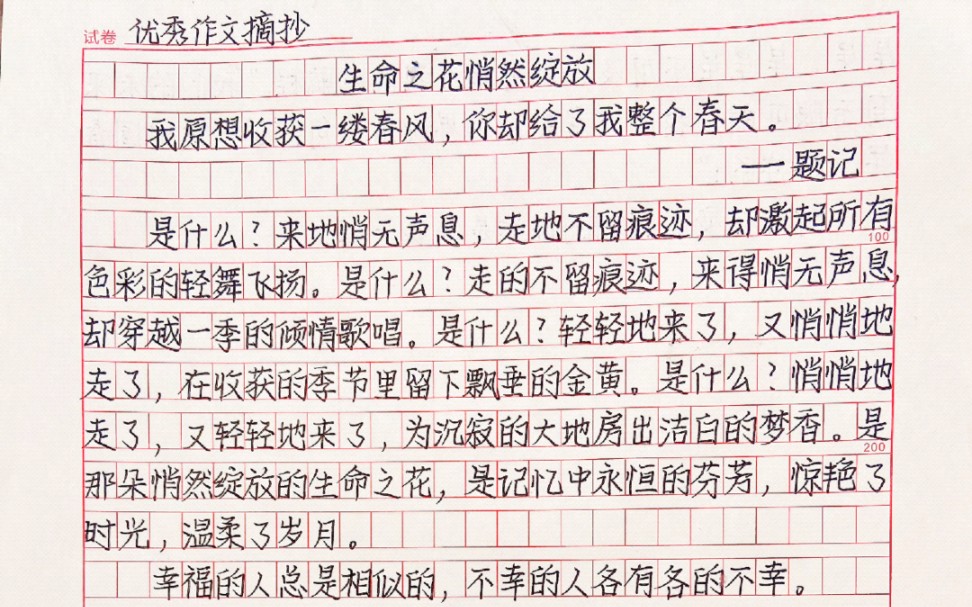 试卷 优秀作文摘抄
生命之花悄然绽放
我原想收获一缕春风，你却给了我整个春天。
——题记
是什么？来地悄无声息，走地不留痕迹，却激起所有
100
色彩的轻舞飞扬。是什么？走的不留痕迹，来得悄无声息，
却穿越一季的倾情歌唱。是什么？轻轻地来了，又悄悄地
走了，在收获的季节里留下飘垂的金黄。是什么？悄悄地
走了，又轻轻地来了，为沉寂的大地房出洁白的梦香。是
200
那朵悄然绽放的生命之花，是记忆中永恒的芬芳，惊艳了
时光，温柔了岁月。
幸福的人总是相似的，不幸的人各有各的不幸。